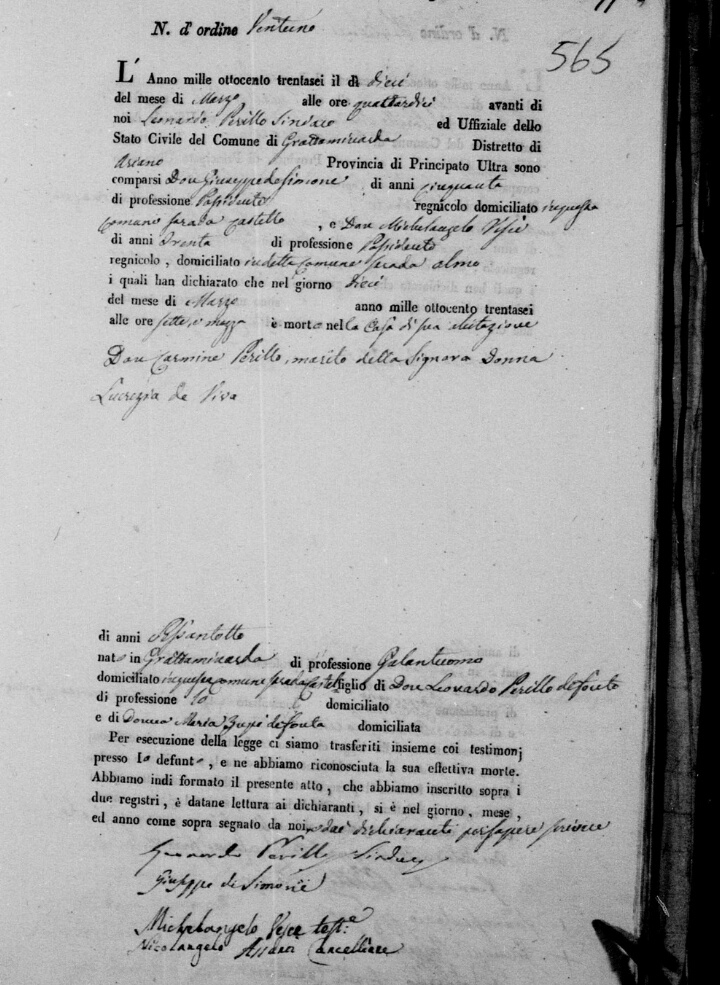 N. d' ordine Ventuno
565
L' Anno mille ottocento trentasei il dì dieci
del mese di Marzo alle ore quattordici avanti di
noi Leonardo Perillo Sindaco ed Uffiziale dello
Stato Civile del Comune di Grottaminarda Distretto di
Ariano Provincia di Principato Ultra sono
comparsi Don Giuseppe de Simone di anni cinquanta
di professione Possidente regnicolo domiciliato in questo
comune strada Castello , e Don Michelangelo Vesce
di anni Trenta di professione Possidente
regnicolo , domiciliato in detto Comune strada olmo
i quali han dichiarato che nel giorno dieci
del mese di Marzo anno mille ottocento trentasei
alle ore sette, e mezza è morto nella Casa di sua abitazione
Don Carmine Perillo, marito della Signora Donna
Lucrezia de Vivo
di anni Sessantotto
nato in Grottaminarda di professione Galantuomo
domiciliato in questo comune strada Castello figlio di Don Leonardo Perillo defonto
di professione domiciliato
e di Donna Maria defonta domiciliata
Per esecuzione della legge ci siamo trasferiti insieme coi testimonj
presso lo defunto , e ne abbiamo riconosciuta la sua effettiva morte.
Abbiamo indi formato il presente atto , che abbiamo inscritto sopra i
due registri , è datane lettura ai dichiaranti , si è nel giorno , mese ,
ed anno come sopra segnato da noi, e dai dichiaranti per sapere scrivere
Leonardo Perillo Sindaco
Giuseppe de Simone
Michelangelo Vesce test.e
Nicolangelo Cancelliere